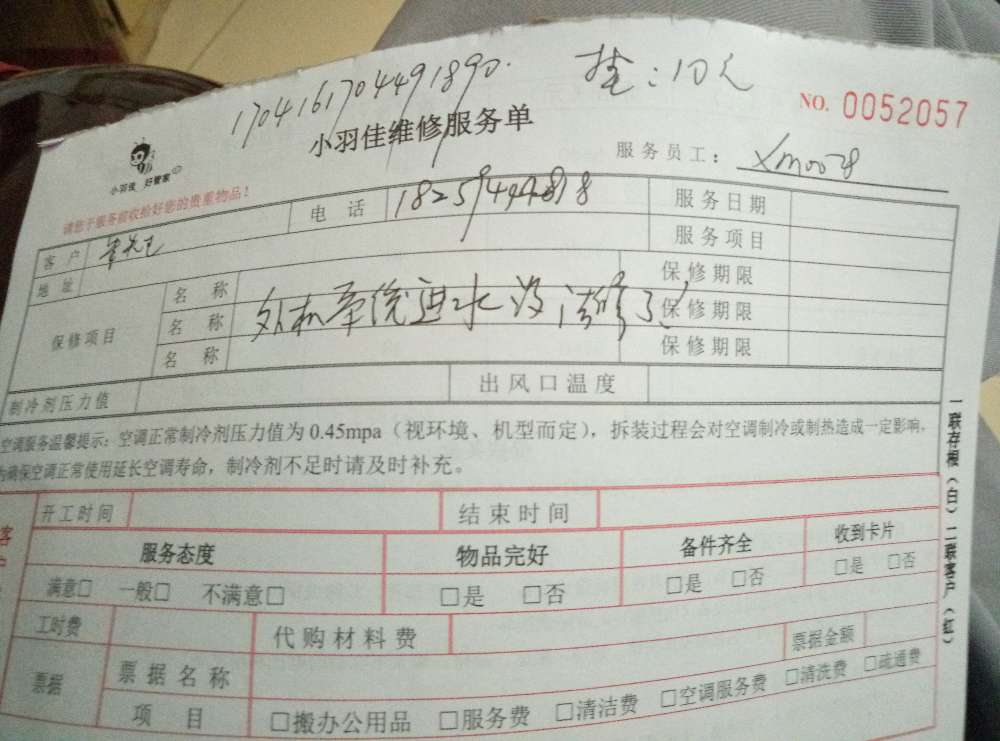 1704161704491890. 10元
NO. 0052057
小羽佳维修服务单
小羽佳 好管家
服务员工： XM0078
请您于服务前收拾好您的贵重物品！
客户 先生 电话 服务日期
地址 服务项目
保修项目 名称 保修期限
名称 外机系统进水没法修了！ 保修期限
名称 保修期限
制冷剂压力值 出风口温度
空调服务温馨提示：空调正常制冷剂压力值为0.45mpa（视环境、机型而定），拆装过程会对空调制冷或制热造成一定影响，
为确保空调正常使用延长空调寿命，制冷剂不足时请及时补充。
一联存根（白）二联客户（红）
开工时间 结束时间
服务态度 物品完好 备件齐全 收到卡片
满意□ 一般□ 不满意□ □是 □否 □是 □否 □是 □否
工时费 代购材料费 票据金额
票据 票据名称
项目 □搬办公用品 □服务费 □清洁费 □空调服务费 □清洗费 □疏通费